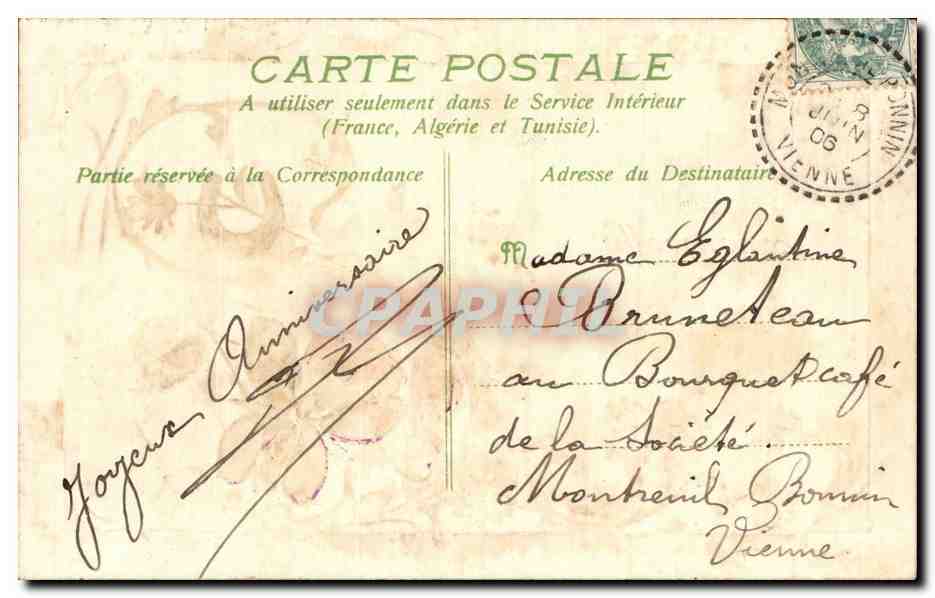 CARTE POSTALE
A utiliser seulement dans le Service Intérieur
(France, Algérie et Tunisie).
Partie réservée à la Correspondance
Adresse du Destinataire
Joyeux Anniversaire
Madame Eglantine
Bruneteau
au Bourguet café
de la Société.
Montreuil Bonnin
Vienne.
8
JUIN
06
VIENNE
CPAPHIL